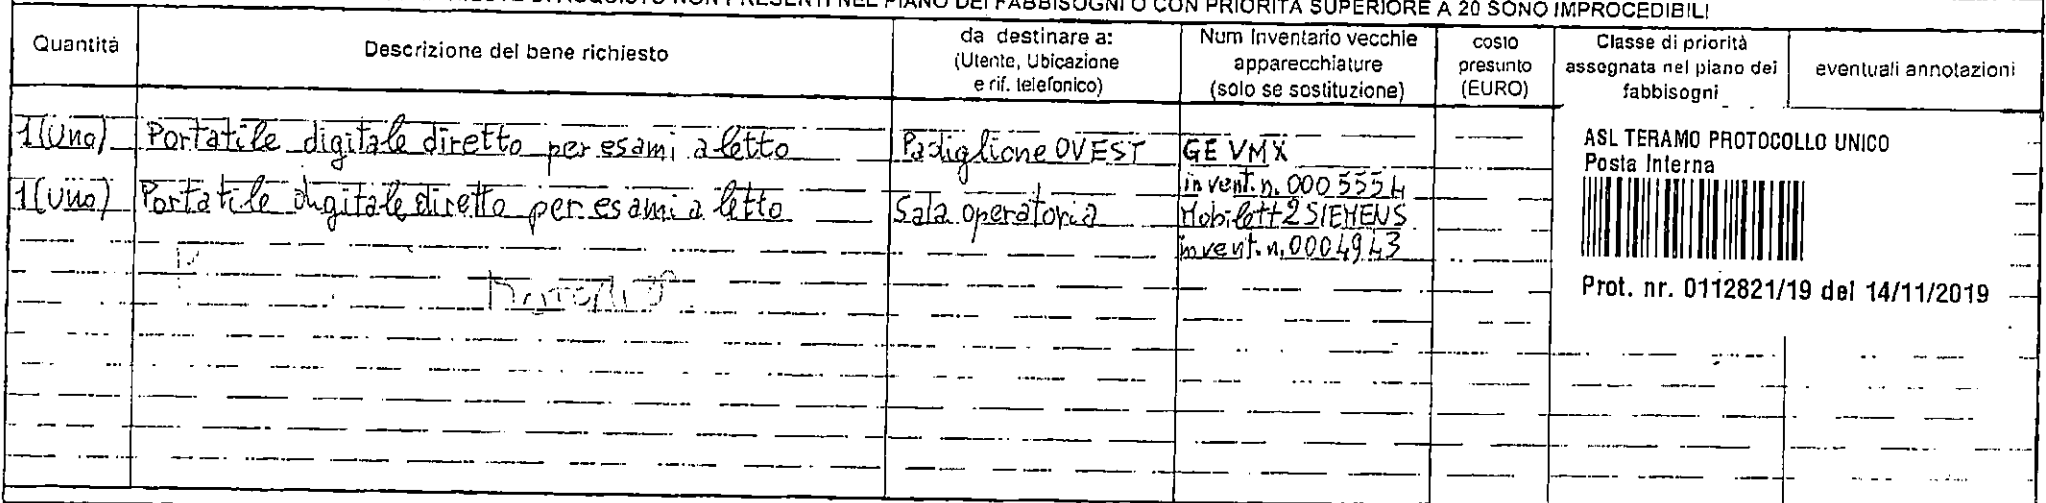 RICHIESTE DI ACQUISTO NON PRESENTI NEL PIANO DEI FABBISOGNI O CON PRIORITÀ SUPERIORE A 20 SONO IMPROCEDIBILI
Quantità
Descrizione del bene richiesto
da destinare a:
(Utente, Ubicazione
e rif. telefonico)
Num Inventario vecchie
apparecchiature
(solo se sostituzione)
costo
presunto
(EURO)
Classe di priorità
assegnata nel piano dei
fabbisogni
eventuali annotazioni
1(uno) Portatile digitale diretto per esami a letto Padiglione OVEST GE VMX
invent. n. 0005554
1(uno) Portatile digitale diretto per esami a letto Sala operatoria Mobilett 2 SIEMENS
invent. n. 0004943
ASL TERAMO PROTOCOLLO UNICO
Posta Interna
Prot. nr. 0112821/19 del 14/11/2019